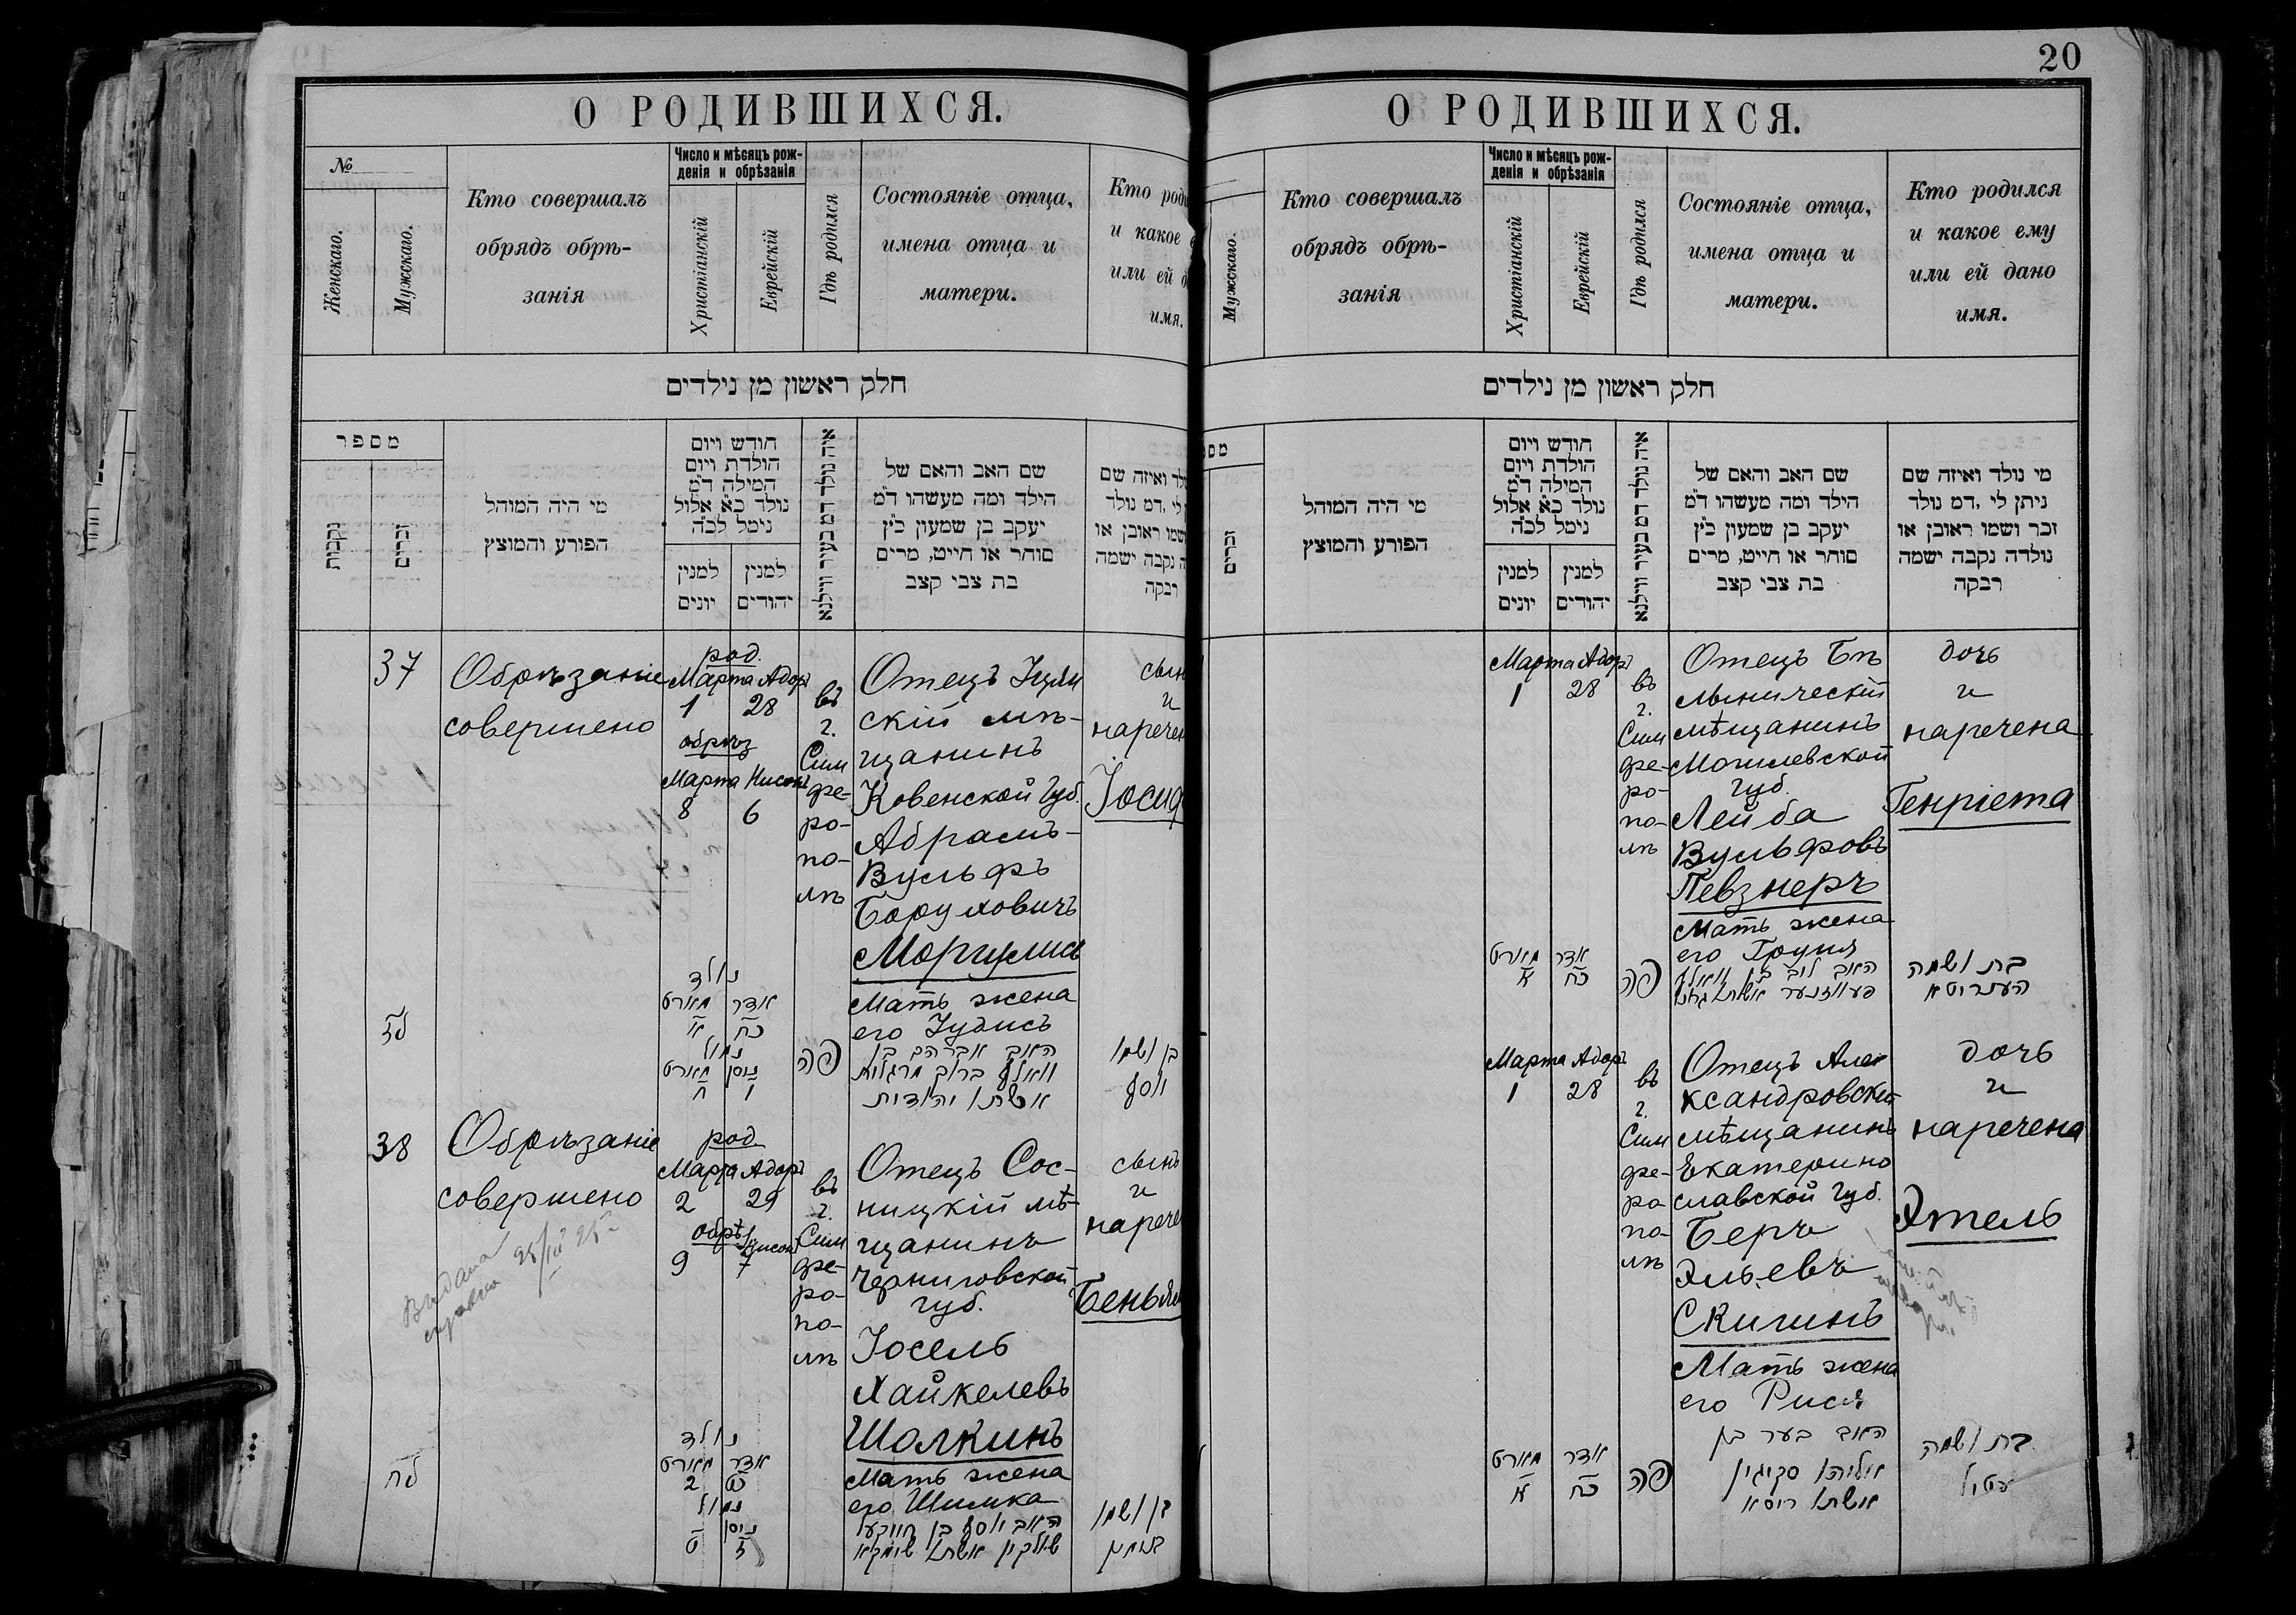 О РОДИВШИХСЯ.
№
Женскаго.
Мужскаго.
Кто совершалъ
обрядъ обрѣ-
занія
Число и мѣсяцъ рож-
денія и обрѣзанія
Христіанскій
Еврейскій
Гдѣ родился
Состояніе отца,
имена отца и
матери.
Кто роди
и какое е
или ей д
имя.
חלק ראשון מן נילדים
מספר
נקבות
זכרים
מי היה המוהל
הפורע והמוצץ
חודש ויום
הולדת ויום
המילה ד״מ
נולד כ״א אלול
נימל לכ״ה
למנין
יונים
למנין
יהודים
איה נולד דמ בעיר ווילנא
שם האב והאם של
הילד ומה מעשהו ד״מ
יעקב בן שמעון כ״ץ
סוחר או חייט, מרים
בת צבי קצב
לד ואיזה שם
לי ,דמ נולד
שמו ראובן או
ה נקבה ישמה
רבקה
37
Обрѣзаніе
совершено
род.
Марта Адоръ
1 28
обрѣз
Марта Нисонъ
8 6
въ
г.
Сим
фе-
ро-
по-
лѣ
Отецъ
скій мѣ-
щанинъ
Ковенской Губ.
Абрамъ-
Вульфъ
Боруховичъ
Моргулисъ
Мать жена
его Іудисъ
сын
и
наречен
Іосиф
לז
נולד
מארט אדר
א כח
נמול
מארט ניסן
ח ו
פה
האב אברהם בן
וואלף ברוך מרגלית
אשתו יהודית
בן ושמו
יוסף
38
Обрѣзаніе
совершено
Видана
справка
род
Марта Адоръ
2 29
обрѣ
Нисонъ
9 7
въ
г.
Сим
фе-
ро-
по-
лѣ
Отецъ Сос-
ницкій мѣ-
щанинъ
Черниговской
губ.
Іосель
Хайкелевъ
Шолкинъ
Мать жена
его Шимка
сынъ
и
нарече
Беньям
לח
נולד
מארט אדר
2 כט
נמול
ניסן
ט ז
האב יוסף בן
שולקין אשתו שימקא
בן ושמו
20
О РОДИВШИХСЯ.
Мужскаго.
Кто совершалъ
обрядъ обрѣ-
занія
Число и мѣсяцъ рож-
денія и обрѣзанія
Христіанскій
Еврейскій
Гдѣ родился
Состояніе отца,
имена отца и
матери.
Кто родился
и какое ему
или ей дано
имя.
חלק ראשון מן נילדים
מספ
זכרים
מי היה המוהל
הפורע והמוצץ
חודש ויום
הולדת ויום
המילה ד״מ
נולד כ״א אלול
נימל לכ״ה
למנין
יונים
למנין
יהודים
איה נולד דמ בעיר ווילנא
שם האב והאם של
הילד ומה מעשהו ד״מ
יעקב בן שמעון כ״ץ
סוחר או חייט, מרים
בת צבי קצב
מי נולד ואיזה שם
ניתן לי ,דמ נולד
זכר ושמו ראובן או
נולדה נקבה ישמה
רבקה
Марта Адоръ
1 28
въ
г.
Сим
фе-
ро-
по-
лѣ
Отецъ Бѣ
лыническій
мѣщанинъ
Могилевской
Губ.
Лейба
Вульфовъ
Певзнеръ
Мать жена
его Груня
дочь
и
наречена
Генріета
מארט אדר
א כח
פה
האב לוב בן וואלף
פעווזנער אשתו
בת ושמה
הענריטא
Марта Адоръ
1 28
въ
г.
Сим
фе-
ро
по-
лѣ
Отецъ Але
ксандровскій
мѣщанинъ
Екатерино
славской Губ.
Беръ
Эльевъ
Скигинъ
Мать жена
его Рися
дочь
и
наречена
Этель
מארט אדר
א כח
פה
האב בער בן
אליהו סקיגין
אשתו ריסא
בת ושמה
עטיל